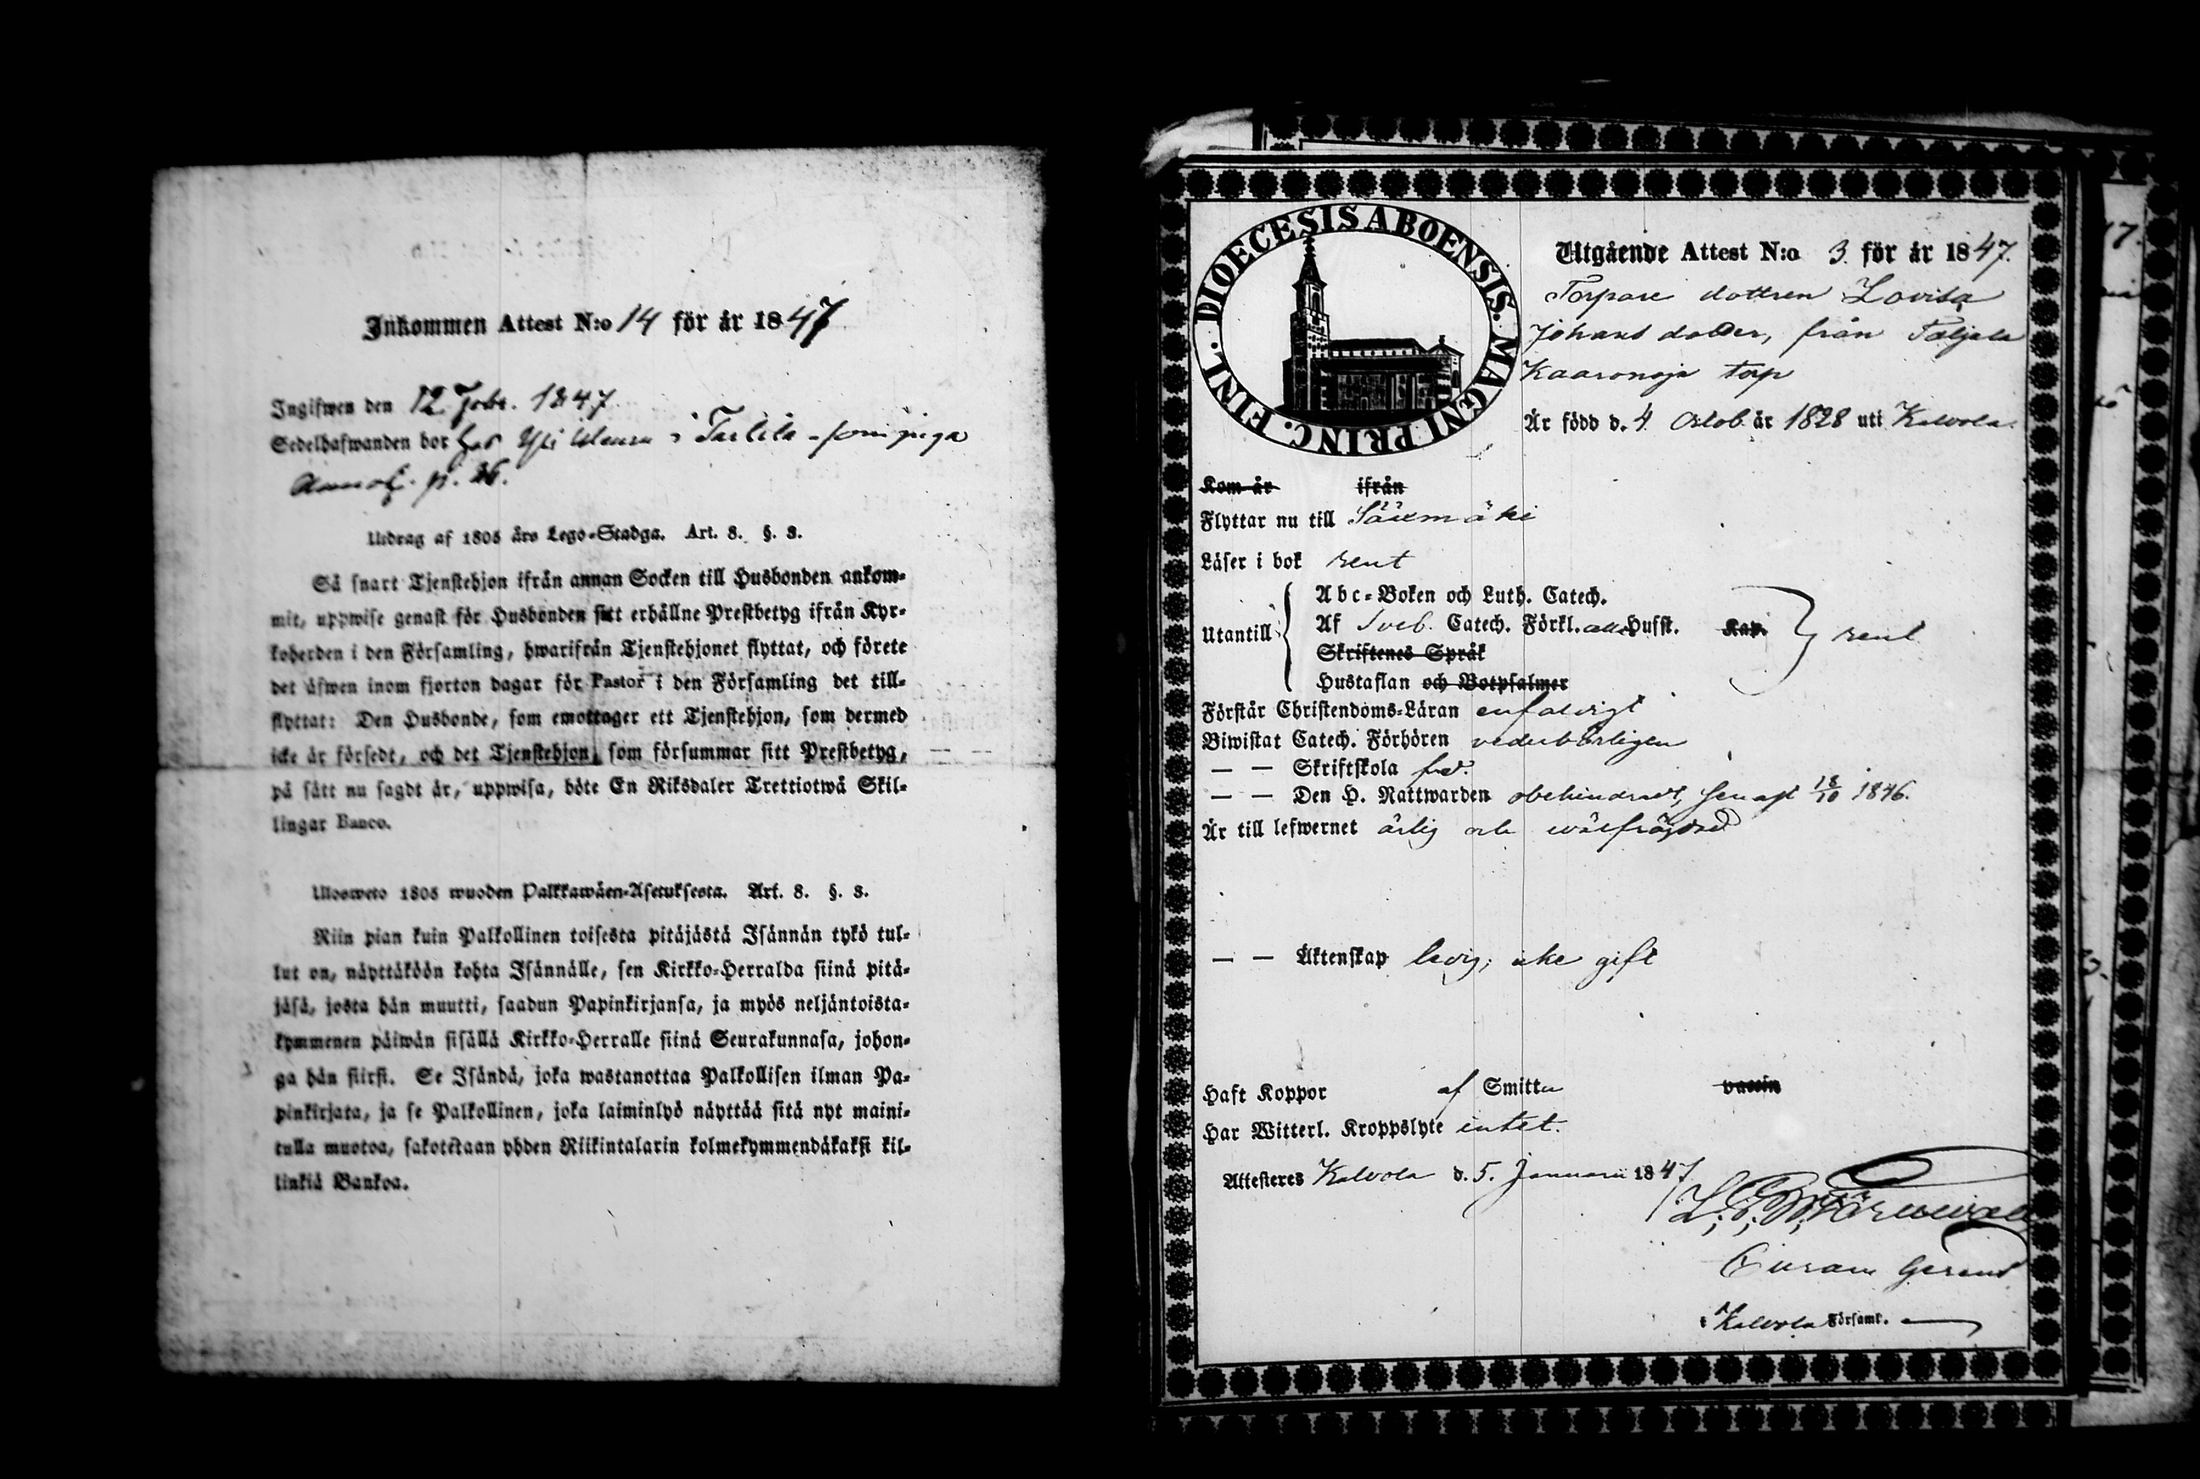 Inkommen Attest N:o 14 för år 1847
Ingifwen den 12 Febr. 1847
Sedelhafwanden bor hos i Tarttila som piga
p. 26.
Utdrag af 1805 års Lego-Stadga. Art. 8. §. 3.
Så snart Tjenstehjon ifrån annan Socken till Husbonden ankom-
mit, uppwise genast för Husbonden sitt erhållne Prestbetyg ifrån Kyr-
koherden i den Församling, hwarifrån Tjenstehjonet flyttat, och förete
det äfwen inom fjorton dagar för Pastor i den Församling det till-
flyttat: Den Husbonde, som emottager ett Tjenstehjon, som dermed
icke är försedt, och det Tjenstehjon, som försummar sitt Prestbetyg,
på sätt nu sagdt är, uppwisa, böte En Riksdaler Trettiotwå Skil-
lingar Banco.
Ulosweto 1805 wuoden Palkkawäen-Asetuksesta. Art. 8. §. 3.
Niin pian kuin Palkollinen toisesta pitäjästä Isännän tykö tul-
lut on, näyttäköön kohta Isännälle, sen Kirkko-Herralda siinä pitä-
jäsä, josta hän muutti, saadun Papinkirjansa, ja myös neljäntoista-
kymmenen päiwän sisällä Kirkko-Herralle siinä Seurakunnasa, johon-
ga hän siirsi. Se Isändä, joka wastanottaa Palkollisen ilman Pa-
pinkirjata, ja se Palkollinen, joka laiminlyö näyttää sitä nyt maini-
tulla muotoa, sakotetaan yhden Riikintalarin kolmekymmendäkaksi kil-
linkiä Bankoa.
DIOECESIS ABOENSIS. MAGNI PRINC. FINL.
Utgående Attest N:o 3 för år 1847.
Torpare dottren Lovisa
Johans dotter, från Taljala
Kaaronoja torp
Är född d. 4 Octob. år 1828 uti Kalvola.
Kom år ifrån
Flyttar nu till Sääxmäki
Läser i bok rent
Utantill Abc-Boken och Luth. Catech.
Af Sveb. Catech. Förkl. Husst. Kap. rent
Skriftenes Språk
Hustaflan och Botpsalmer
Förstår Christendoms-Läran enfaldigt
Biwistat Catech. Förhören vederbörligen
— — Skriftskola
— — Den H. Nattwarden obehindradt, senast 18/10 1846.
Är till lefwernet ärlig och wälfräjdad
— — Äktenskap ledig, icke gift
Haft Koppor af Smitta vaccin
Har Witterl. Kroppslyte intet.
Attesteres Kalvola d. 5. Januarii 1847
Curam Gerens
i Kalvola Församl.